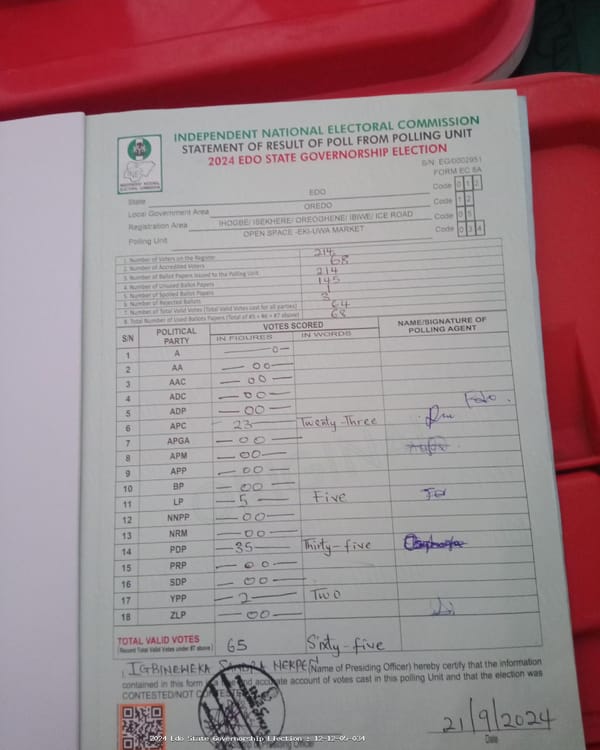 INDEPENDENT NATIONAL ELECTORAL COMMISSION
STATEMENT OF RESULT OF POLL FROM POLLING UNIT
2024 EDO STATE GOVERNORSHIP ELECTION
S/N: EG/0002951
FORM EC 8A
State EDO Code 0 1 2
Local Government Area OREDO Code 1 2
Registration Area IHOGBE/ ISEKHERE/ OREOGHENE/ IBIWE/ ICE ROAD Code 0 5
Polling Unit OPEN SPACE -EKI-UWA MARKET Code 0 3 4
1. Number of Voters on the Register 214
2. Number of Accredited Voters 68
3. Number of Ballot Papers Issued to the Polling Unit 214
4. Number of Unused Ballot Papers 145
5. Number of Spoiled Ballot Papers 1
6. Number of Rejected Ballots 3
7. Number of Total Valid Votes (Total Valid Votes cast for all parties) 64
8. Total Number of Used Ballot Papers (Total of #5 + #6 + #7 above) 68
S/N POLITICAL PARTY VOTES SCORED NAME/SIGNATURE OF POLLING AGENT
IN FIGURES IN WORDS
1 A 0
2 AA 00
3 AAC 00
4 ADC 00
5 ADP 00
6 APC 23 Twenty-Three
7 APGA 00
8 APM 00
9 APP 00
10 BP 00
11 LP 5 Five
12 NNPP 00
13 NRM 00
14 PDP 35 Thirty-five
15 PRP 00
16 SDP 00
17 YPP 2 Two
18 ZLP 00
TOTAL VALID VOTES 65 Sixty-five
(Record Total Valid Votes under #7 above)
I, IGBINEWEKA SANDRA NEKPEN (Name of Presiding Officer) hereby certify that the information
contained in this form is a true and accurate account of votes cast in this polling Unit and that the election was
CONTESTED/NOT CONTESTED
21/9/2024
Date
2024 Edo State Governorship Election : 12-12-05-034